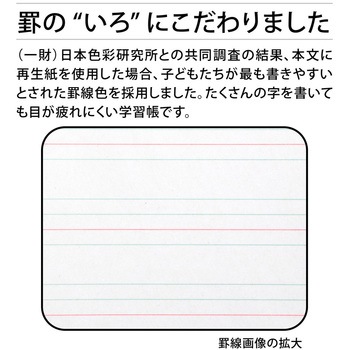 罫の“いろ”にこだわりました
(一財)日本色彩研究所との共同調査の結果、本文に
再生紙を使用した場合、子どもたちが最も書きやすい
とされた罫線色を採用しました。たくさんの字を書いて
も目が疲れにくい学習帳です。
罫線画像の拡大